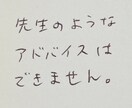 先生のような
アドバイスは
できません。